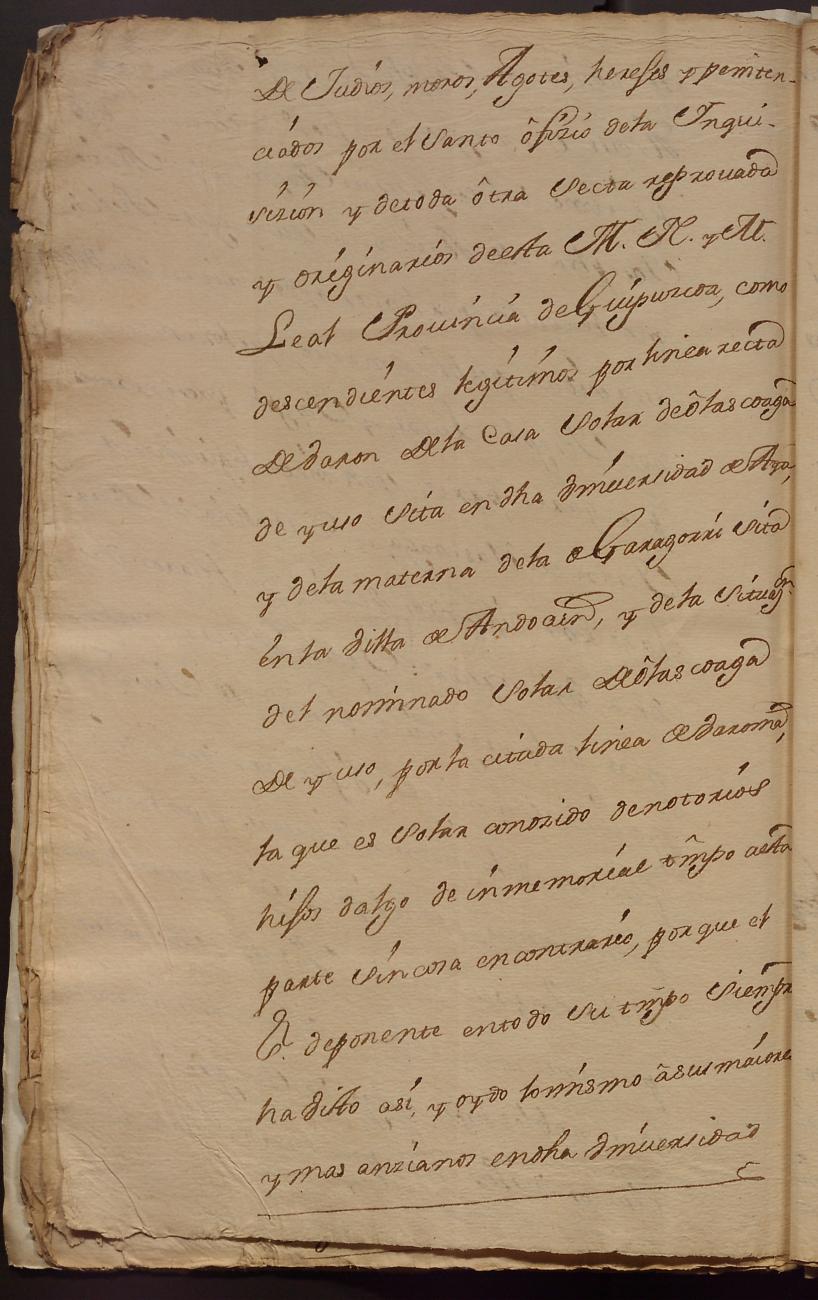 De Judios, moros, Agotes, hereses y peniten-
ciados por el Santo ôfizio dela Inqui-
sizion y detoda ôtra Secta reprouada
y originarios deesta M. N. y M.
Leal Prouincia deGuipuzcoa, como
descendientes legitimos por linea recta
De baron De la Casa Solar deôlascoaga
de yuso Sita en dha Vniuersidad de Aya,
y dela materna dela de Garagorri Sita
en la Villa de Andoain, y dela
del nominado Solar De ôlascoaga
De yuso, por la citada linea de baronia,
la que es Solar conozido denotorios
hijos dalgo de inmemorial tmpo aesta
parte Sin cosa encontrario, porque el
deponente entodo Su tmpo Siempre
ha dicho asi, y oydo lomismo âsus maiores
y mas anzianos endha Vniuersidad